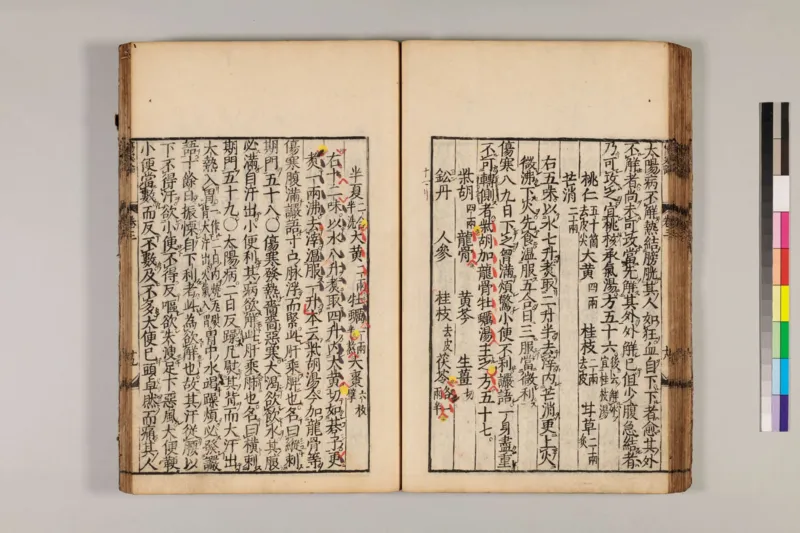 太陽病不解熱結膀胱其人如狂血自下下者愈其外
不解者尚不可攻當先解其外外解已但少腹急結者
乃可攻之宜桃核承氣湯方五十六
桃仁五十箇去皮尖 大黄四兩 桂枝二兩去皮 甘草二兩
芒消二兩
右五味以水七升煑取二升半去滓内芒消更上火
微沸下火先食溫服五合日三服當微利
傷寒八九日下之胷滿煩驚小便不利讝語一身盡重
不可轉側者柴胡加龍骨牡蠣湯主之方五十七
柴胡四兩 龍骨 黄芩 生薑切
鈆丹 人參 桂枝去皮 茯苓
半夏 大黄二兩 牡蠣 大棗六枚
右十二味以水八升煑取四升内大黄切如碁子更
煑一兩沸去滓溫服一升本云柴胡湯今加龍骨等
傷寒腹滿讝語寸口脉浮而緊此肝乘脾也名曰縱刺
期門五十八〇傷寒發熱嗇嗇惡寒大渴欲飲水其腹
必滿自汗出小便利其病欲解此肝乘肺也名曰橫刺
期門五十九〇太陽病二日反躁凡熨其背而大汗出
大熱入胃 胃中水竭躁煩必發讝
語十餘日振慄自下利者此爲欲解也故其汗從腰以
下不得汗欲小便不得反嘔欲失溲足下惡風大便鞕
小便當數而反不數及不多大便已頭卓然而痛其人